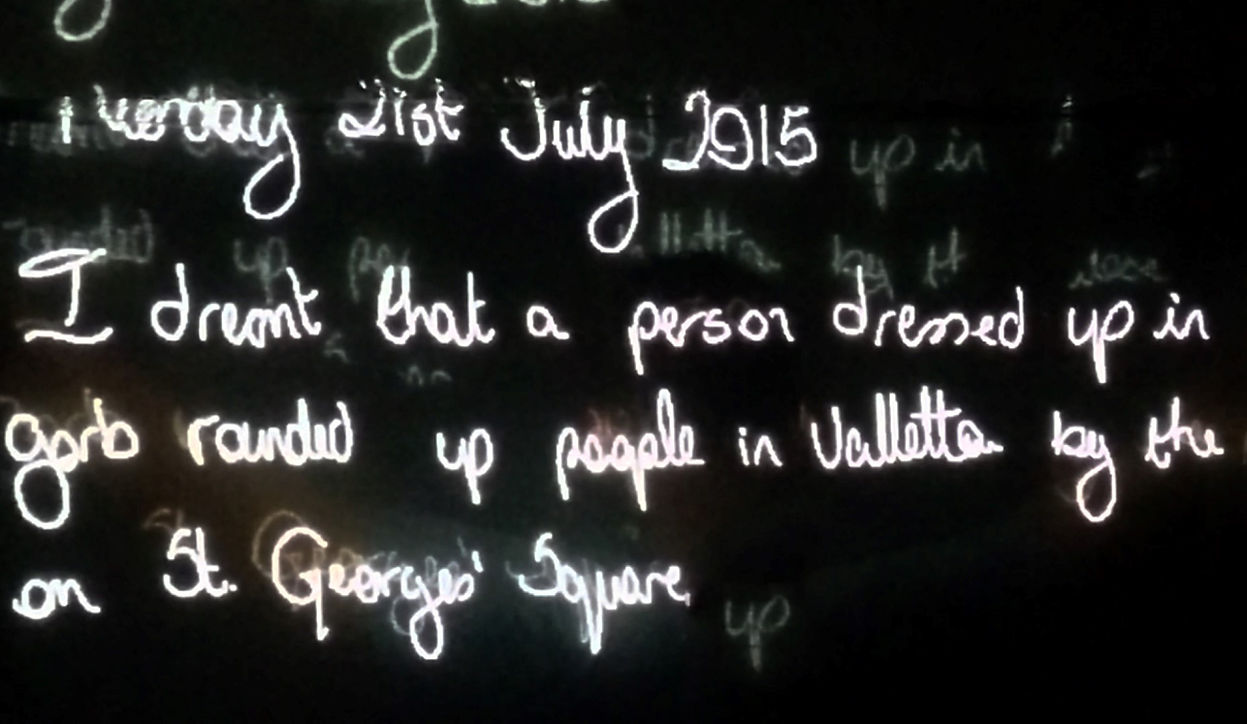 Tuesday 21st July 2015
I dreamt that a person dressed up in
garb rounded up people in Valletta by the
on St. Georges' Square